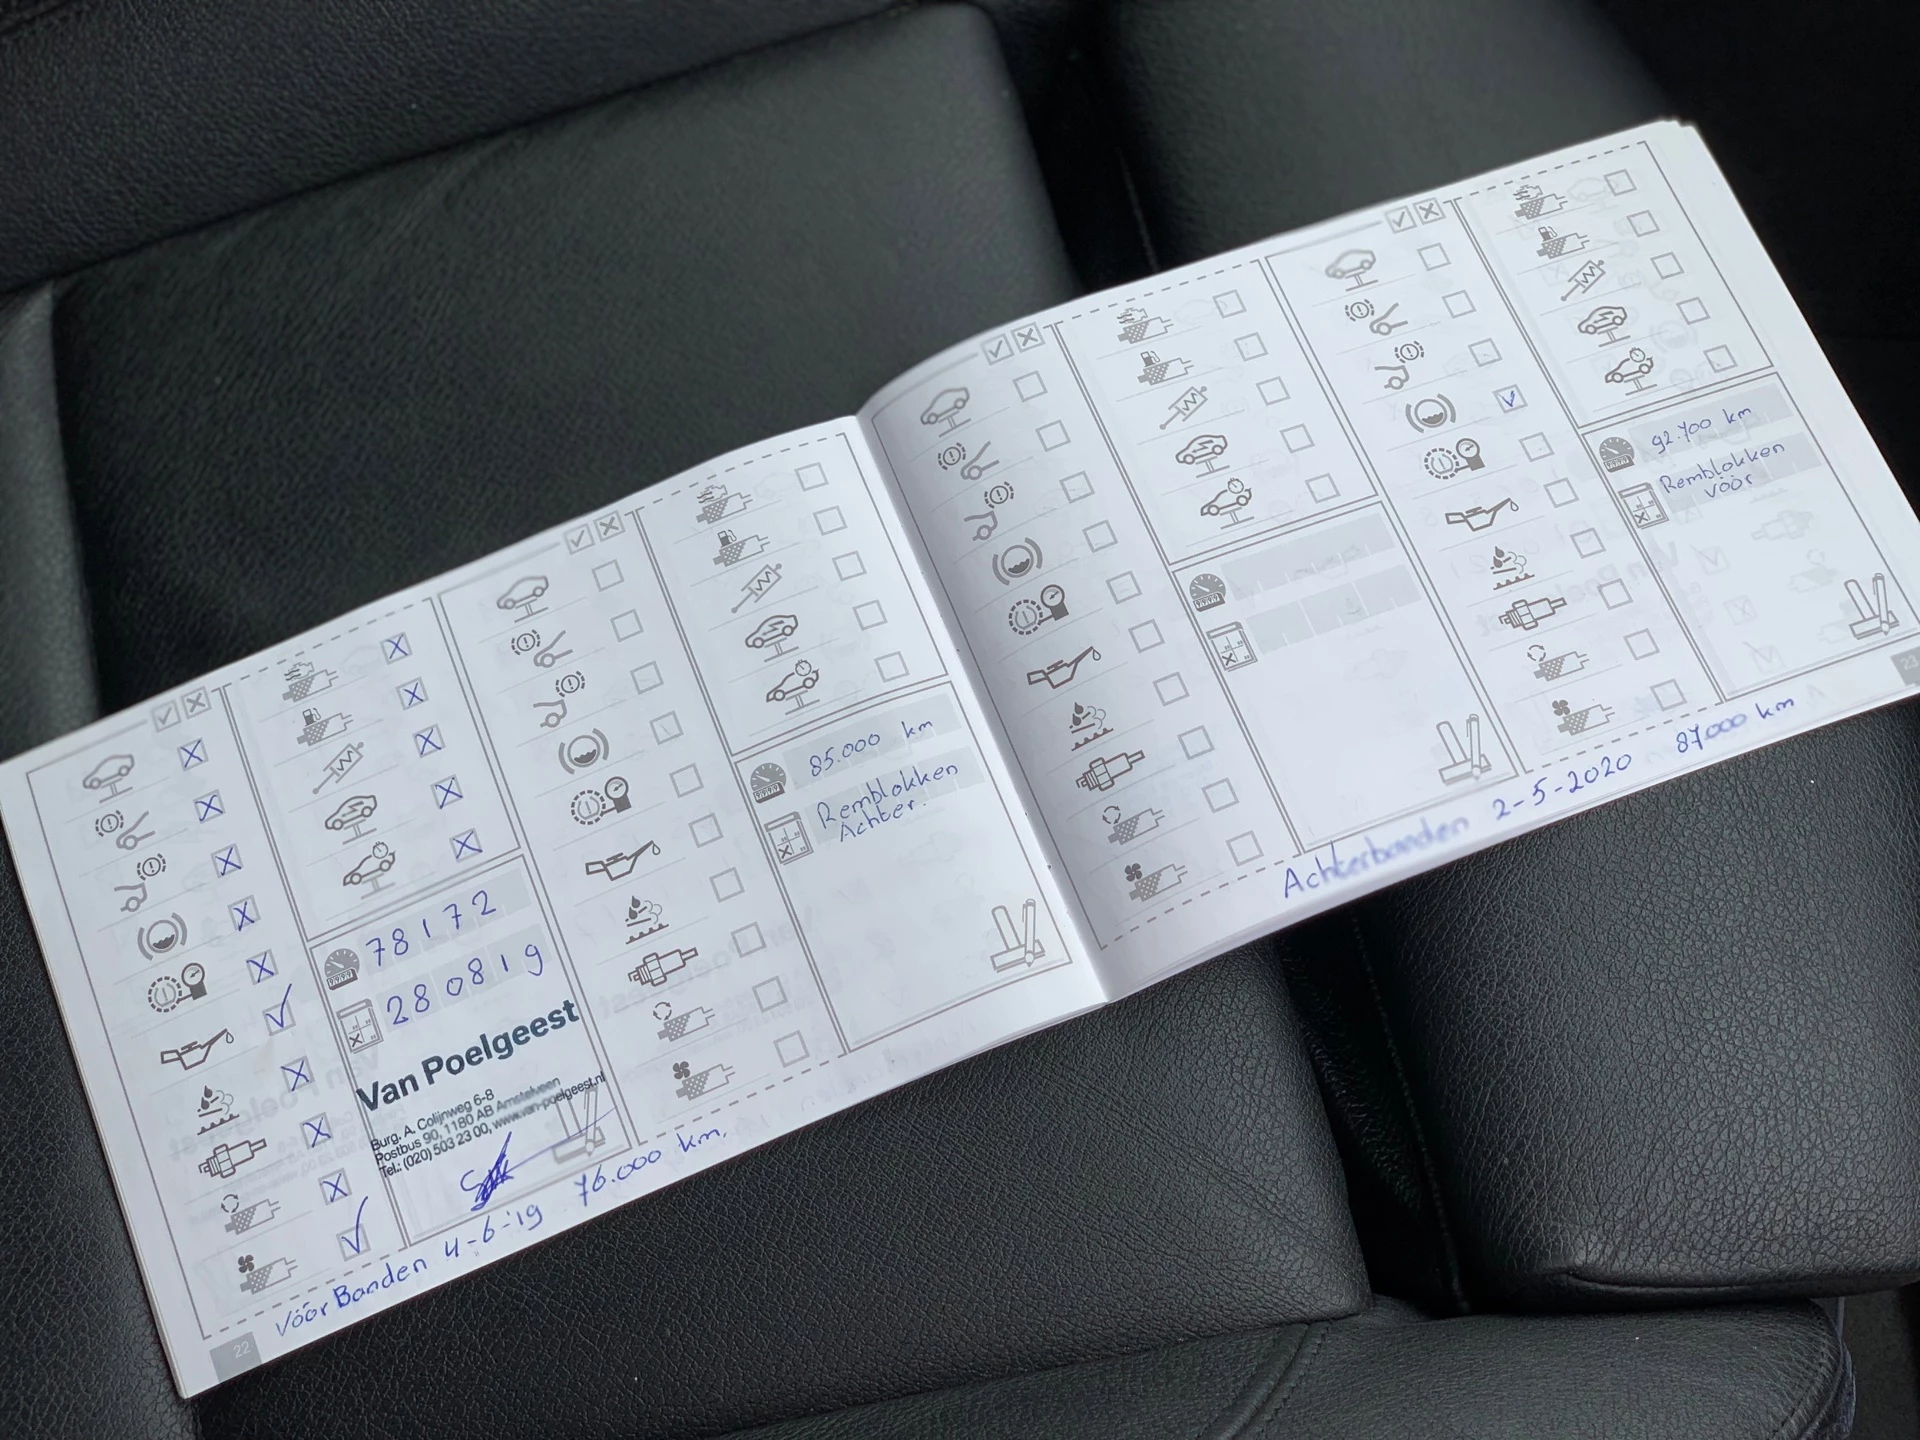 78172
280819
Van Poelgeest
Burg. A. Colijnweg 6-8
Postbus 90, 1180 AB Amstelveen
Tel.: (020) 503 23 00, www.van-poelgeest.nl
Vóór Banden 4-6-'19 76.000 km.
22
85.000 km
Remblokken
Achter.
Achterbanden 2-5-2020 87000 km
92.700 km
Remblokken
vóór
23